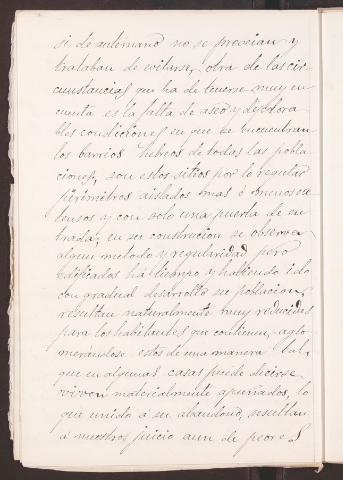 si de antemano no se preveian y
trataban de evitarse, otra de las cir-
cunstancias que ha de tenerse muy en
cuenta es la falta de aseo y deplora-
bles condiciones en que se encuentran
los barrios hebreos de todas las pobla-
ciones, son estos sitios por lo regular
perimetros aislados mas ó menos ex-
tensos y con solo una puerta de en-
trada, en su construcion se observa
algun metodo y regularidad pero
edificados há tiempo y habiendo ido
con gradual desarrollo su poblacion,
resultan naturalmente muy reducidas
para los habitantes que contienen, aglo-
merándose estos de una manera tal,
que en algunas casas puede decirse
viven materialmente apiñados, lo
que unido á su abandono, resultan
á nuestro juicio aun de peores